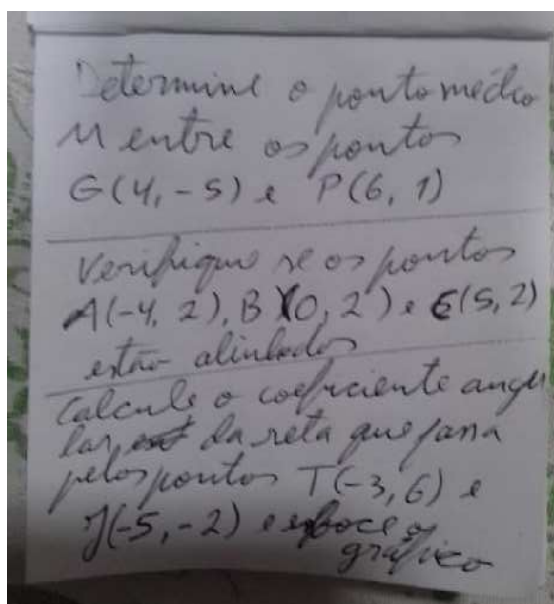 Determine o ponto médio
M entre os pontos
G(4, -5) e P(6, 1)
Verifique se os pontos
A(-4, 2), B(0, 2) e C(5, 2)
estão alinhados
Calcule o coeficiente angu
lar da reta que passa
pelos pontos T(-3, 6) e
J(-5, -2) e esboce o
gráfico